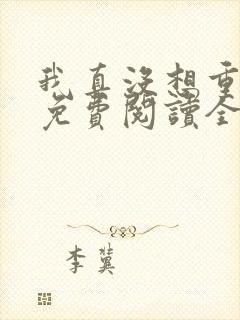 我真没想重
免費閱讀全
李冀